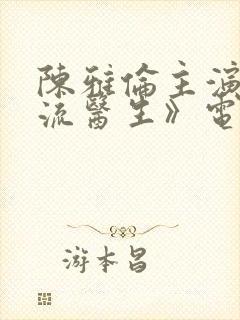 陳雅倫主演
流醫生》電
游本昌